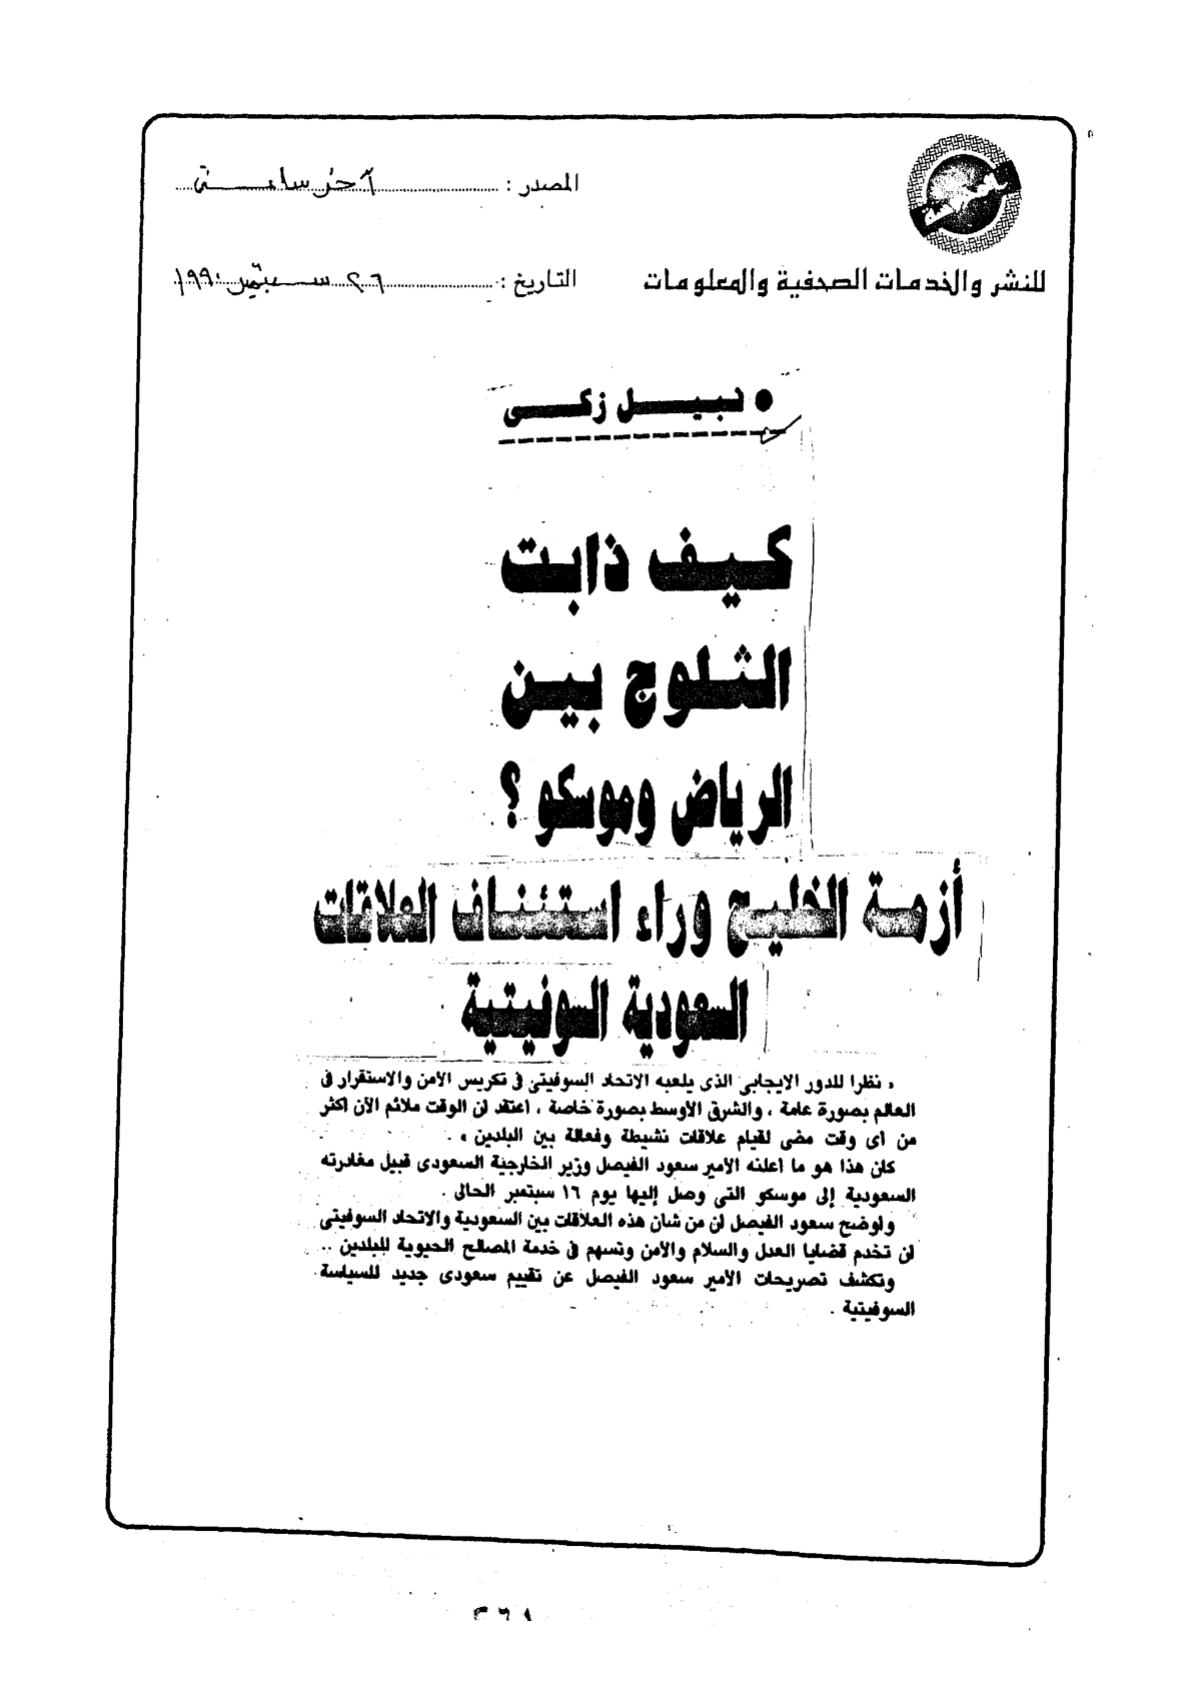 المصدر : آخر ساعة
للنشر والخدمات الصحفية والمعلومات
التاريخ : ٢٦ سبتمبر ١٩٩٠
● نبيل زكى
كيف ذابت
الثلوج بين
الرياض وموسكو ؟
أزمة الخليج وراء استئناف العلاقات
السعودية السوفيتية
« نظرا للدور الايجابى الذى يلعبه الاتحاد السوفيتى فى تكريس الأمن والاستقرار فى
العالم بصورة عامة ، والشرق الأوسط بصورة خاصة ، أعتقد أن الوقت ملائم الآن أكثر
من أى وقت مضى لقيام علاقات نشيطة وفعالة بين البلدين » .
كان هذا هو ما أعلنه الأمير سعود الفيصل وزير الخارجية السعودى قبيل مغادرته
السعودية إلى موسكو التى وصل إليها يوم ١٦ سبتمبر الحالى .
وأوضح سعود الفيصل أن من شأن هذه العلاقات بين السعودية والاتحاد السوفيتى
أن تخدم قضايا العدل والسلام والأمن وتسهم فى خدمة المصالح الحيوية للبلدين ..
وتكشف تصريحات الأمير سعود الفيصل عن تقييم سعودى جديد للسياسة
السوفيتية .